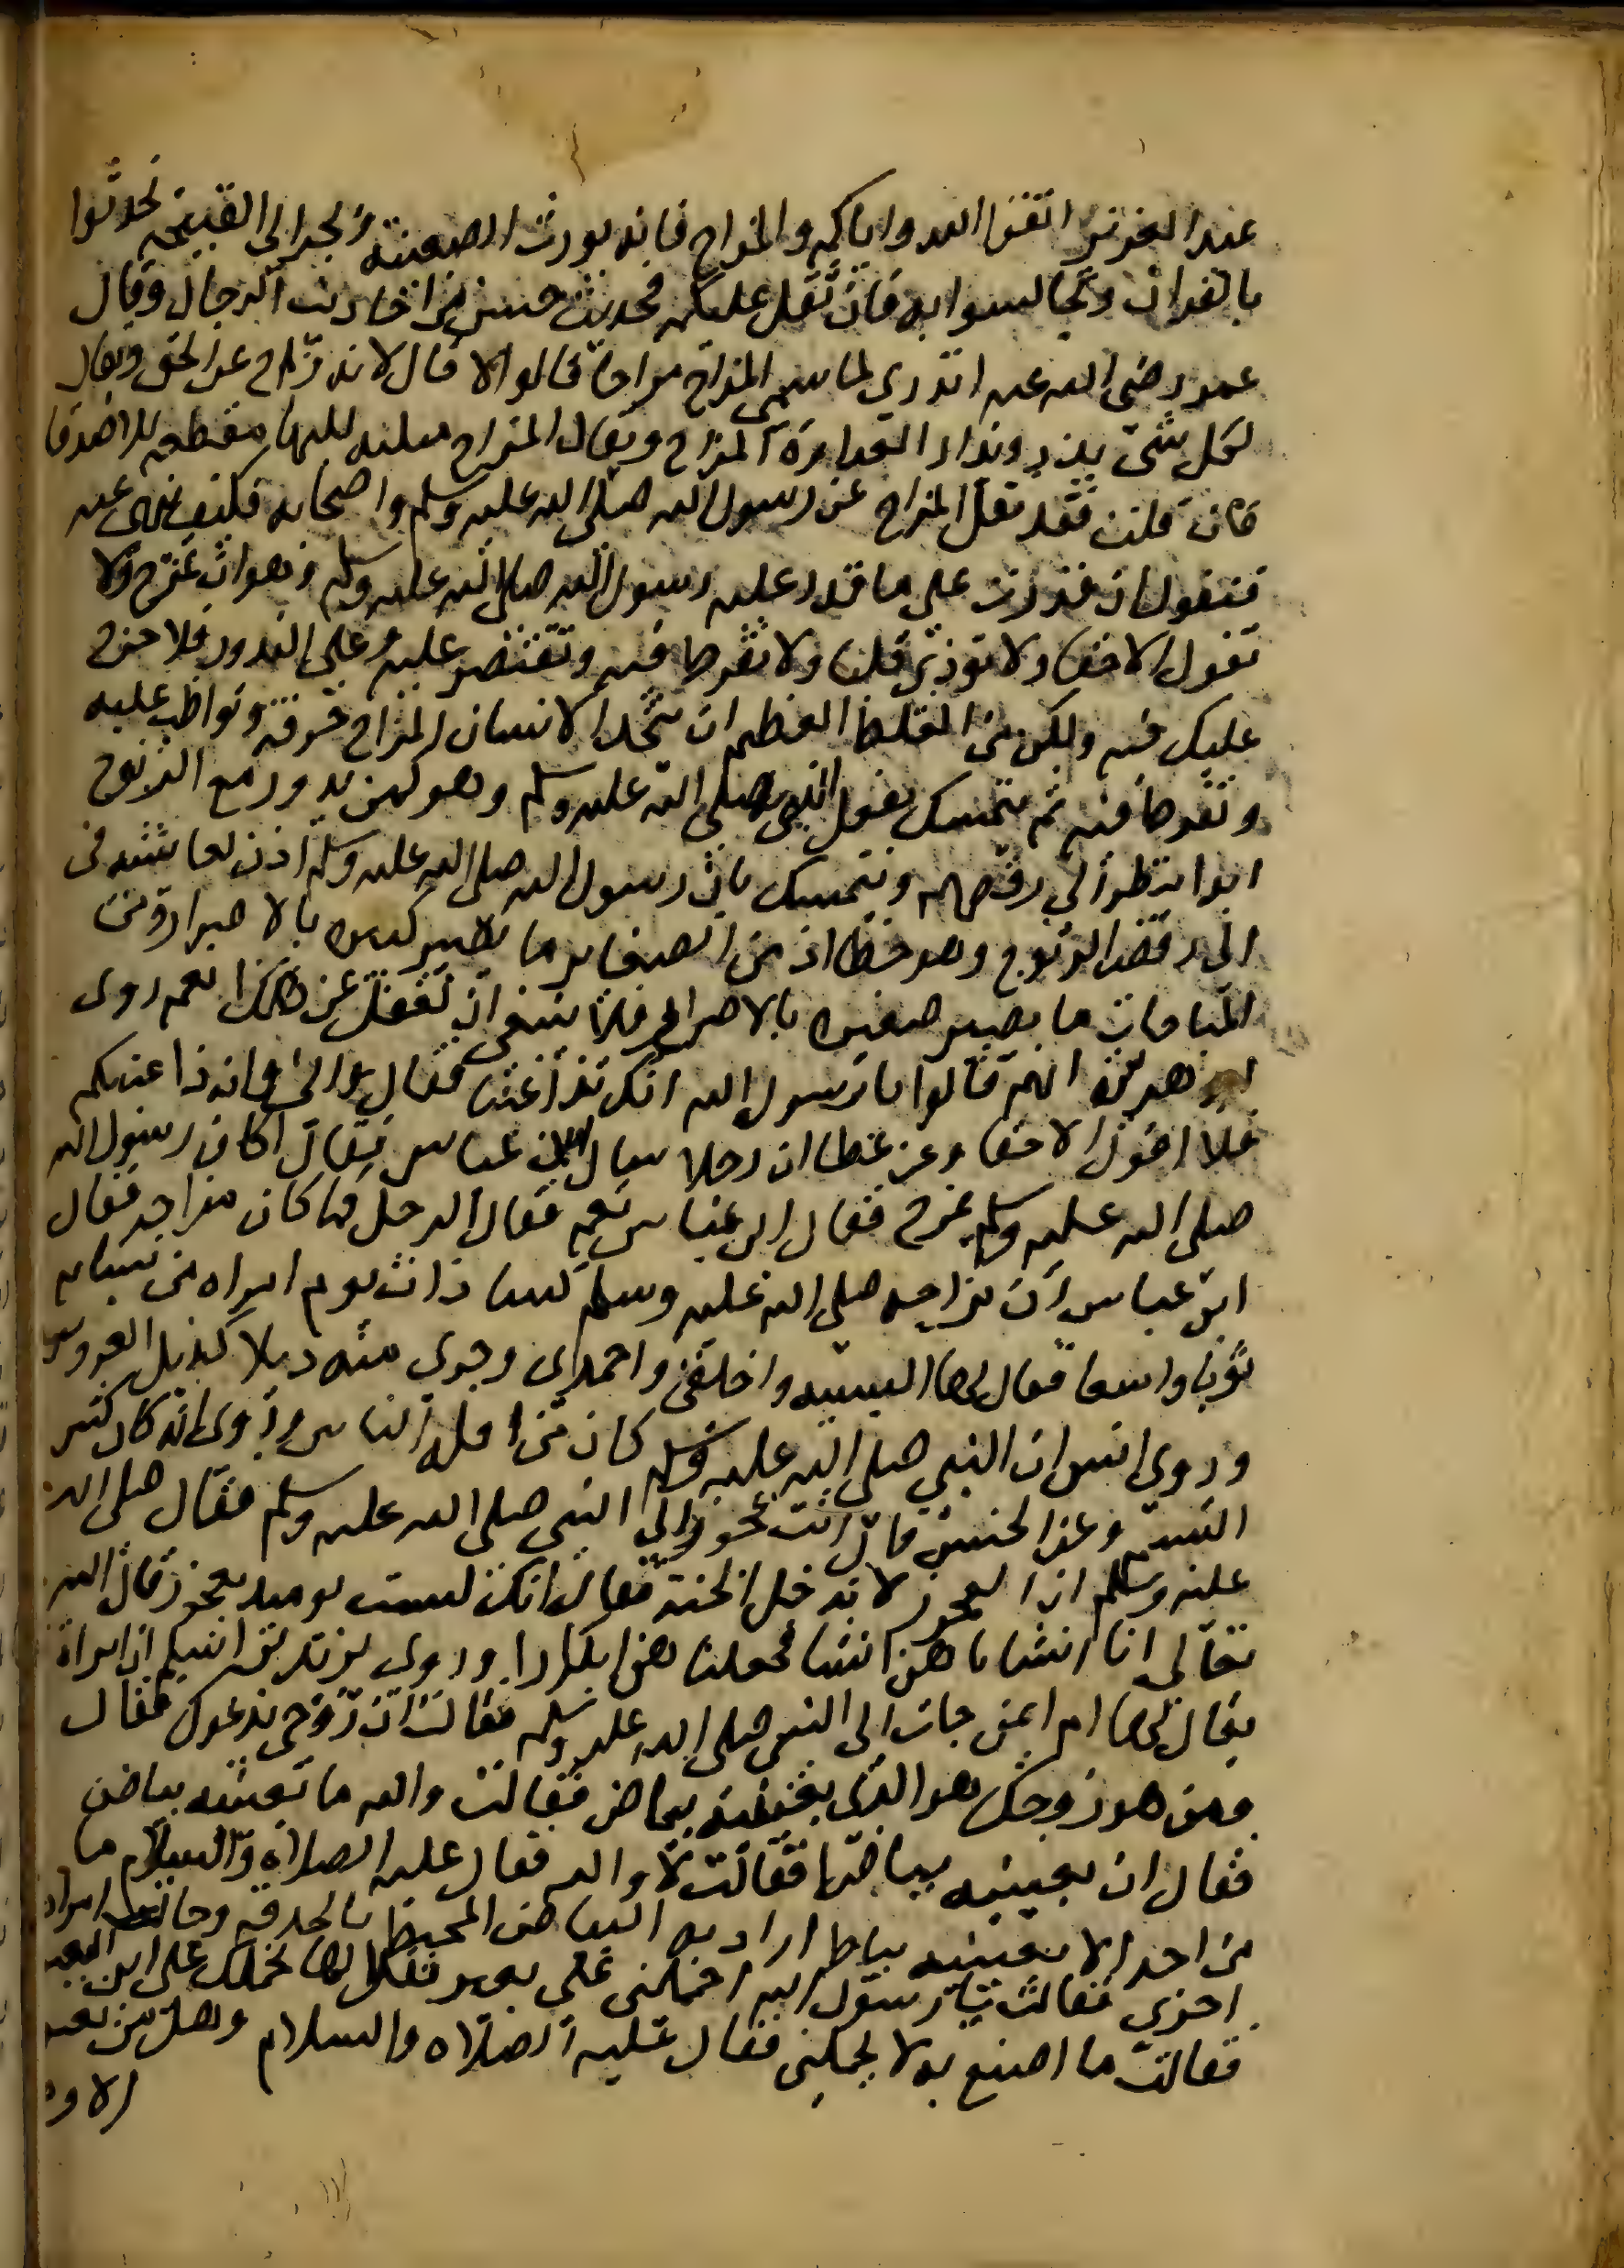 عبد العزيز اتقوا الله واياكم والمزاح فانه يورث الضغينة ويجر الى القبيح تحدثوا
بالقران وتجالسوا به فان ثقل عليكم فحديث حسن من احاديث الرجال وقال
عمر رضي الله عنه اتدرون لما سمي المزاح مزاحا قالوا لا قال لانه زاح عن الحق وقال
لكل شي بذر وبذار العداوة المزاح ويقال المزاح مسلبه للبها مقطعه للاصدقا
فان قلت فقد نقل المزاح عن رسول الله صلى الله عليه وسلم واصحابه فكيف ينهى عنه
فنقول ان قدرت على ما قدر عليه رسول الله صلى الله عليه وسلم وهو ان تمزح ولا
تقول الا حقا ولا توذي قلبا ولا تفرط فيه وتقتصر عليه على الندور فلا حرج
عليك فيه ولكن من الغلط العظيم ان يتخذ الانسان المزاح حرفة ويواظب عليه
ويفرط فيه ثم يتمسك بفعل النبي صلى الله عليه وسلم وهو كمن يدور مع الزنوج
ابدا ينظر الى رقصهم ويتمسك بان رسول الله صلى الله عليه وسلم اذن لعايشه في
الى رقص الزنوج وهو خطا اذ من الصغاير ما يصير كبيره بالاصرار ومن
المباحات ما يصير صغيره بالاصرار فلا ينبغي ان تغفل عن هذا نعم روى
ابو هريرة انهم قالوا يا رسول الله انك تداعبنا فقال اني وان داعبتكم
فلا اقول الا حقا وعن عطا ان رجلا سال ابن عباس فقال اكان رسول الله
صلى الله عليه وسلم يمزح فقال ابن عباس نعم فقال الرجل فما كان مزاحه فقال
ابن عباس ان مزاحه صلى الله عليه وسلم كسا ذات يوم امراه من نسايه
ثوبا واسعا فقال لها البسيه واحمدي وجري منه ذيلا كذيل العروس
وروى انس ان النبي صلى الله عليه وسلم كان من افكه الناس وروى انه كان كثير
التبسم وعن الحسن قال اتت عجوز الى النبي صلى الله عليه وسلم فقال صلى الله
عليه وسلم ان العجوز لا تدخل الجنة فقال انك لست يوميذ بعجوز قال الله
تعالى انا انشاناهن انشا فجعلناهن ابكارا وروى زيد بن اسلم ان امراة
يقال لها ام ايمن جات الى النبي صلى الله عليه وسلم فقالت ان زوجي يدعوك فقال
ومن هو زوجك اهو الذي بعينيه بياض فقالت والله ما بعينه بياض
فقال ان بعينيه بياضا فقالت لا والله فقال عليه الصلاه والسلام ما
من احد الا بعينيه بياض اراد به البياض المحيط بالحدقه وجات امراه
اخرى فقالت يا رسول الله احملني على بعير فقال لها نحملك على ابن البعير
فقالت ما اصنع به لا يحملني فقال عليه الصلاه والسلام وهل من بعير
الا و